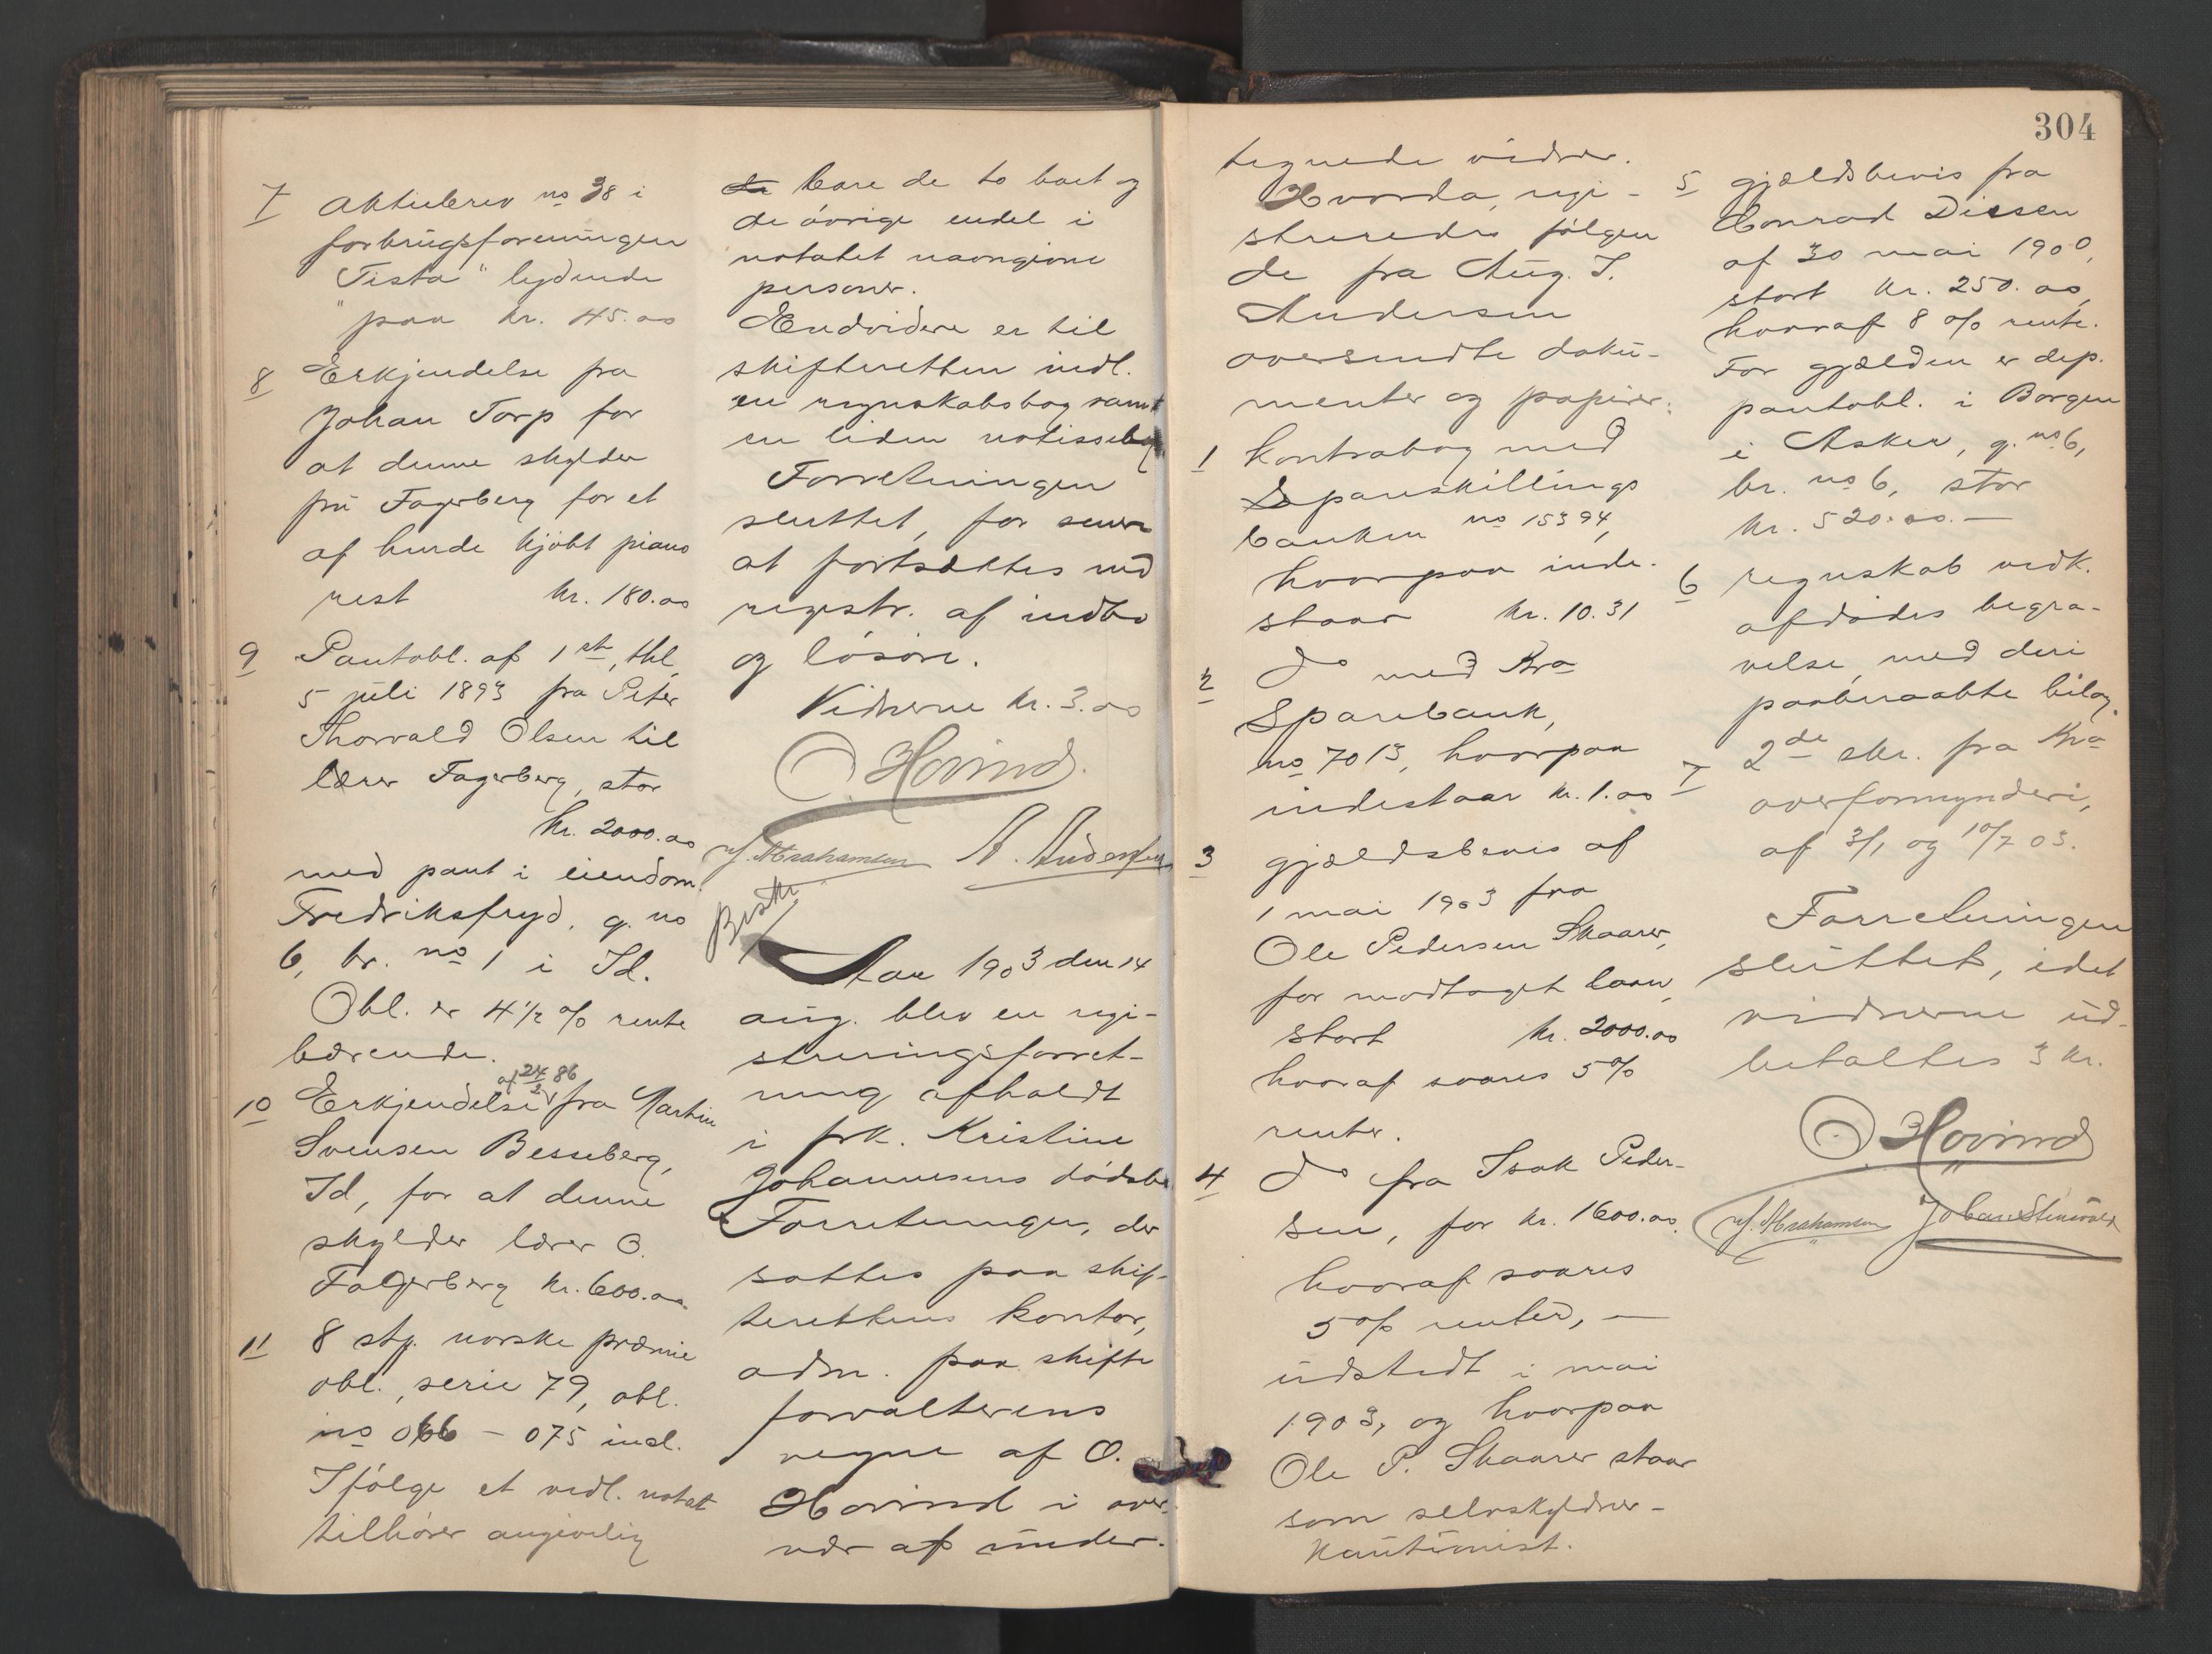 7 Aktiebrev no 38 i
forbrugsforeningen
"Tista" lydende
paa kr. 45.00
8 Erkjendelse fra
Johan Torp for
at denne skylder
fru Fagerberg for et
af hende kjøbt piano
rest kr. 180.00
9 Pantobl. af 1ste, thl.
5 juli 1893 fra Peter
Thorvald Olsen til
lærer Fagerberg, stor
kr. 2000.00
med pant i eiendom.
Fredriksfryd, g. no
6, br. no 1 i Id.
Obl. er 4½ % rente
bærende.
10 Erkjendelse af 24/2 86 fra Martin
Svensen Besseberg,
Id, for at denne
skylder lærer O.
Fagerberg kr. 600.00.
11 8 stk. norske præmie
obl., serie 79, obl.
no 066 – 075 incl.
Ifølge et vedl. notat
tilhører angivelig
bare de to boet og
de øvrige endel i
notatet navngivne
personer.
Endvidere er til
skifteretten indl.
en regnskabsbog samt
en liden notisebog
Forretningen
sluttet, for senere
at fortsættes med
registr. af indbo
og løsøre.
Vidnerne kr. 3.00
O. Hovind.
M. Abrahamsen A. Andersen
Beskr
Aar 1903 den 14
aug. blev en regi-
streringsforret-
ning afholdt
i frk. Kristine
Johannesens dødsbo
Forretningen, der
sattes paa skif-
terettens kontor,
adm. paa skifte
forvalterens
vegne af O.
Hovind i over-
vær af under-
304
tegnede vidner.
Hvorda, regi-
streredes følgen
de fra Aug. T.
Andersen
oversendte doku-
menter og papirer:
1 Kontrabog med
Spareskillings
banken no 15394,
hvorpaa inde-
staar kr. 10.31
2 Do med Kra
Sparebank,
no 7013, hvorpaa
indestaar kr. 1.00
3 gjældsbevis af
1 mai 1903 fra
Ole Pedersen Skaarer,
for modtaget laan,
stort kr. 2000.00
hvoraf svares 5%
renter.
4 Do fra Isak Peder-
sen, for kr. 1600.00,
hvoraf svares
5% renter, —
udstedt i mai
1903, og hvorpaa
Ole P. Skaarer staar
som selvskyldner-
kautionist.
5 gjældsbevis fra
Conrad Diesen
af 30 mai 1900,
stort kr. 250.00,
hvoraf 8 % rente.
For gjælden er dep.
pantobl. i Borgen
i Asker, g. no 6,
br. no 6, stor
kr. 520.00. —
6 regnskab vedk.
afdødes begra-
velse, med deri
paaberaabte bilag.
7 2de skr. fra Kra
overformynderi,
af 3/1 og 10/7 03.
Forretningen
sluttet, idet
vidnerne ud-
betaltes 3 kr.
O Hovind
M. Abrahamsen Johan Stensvold